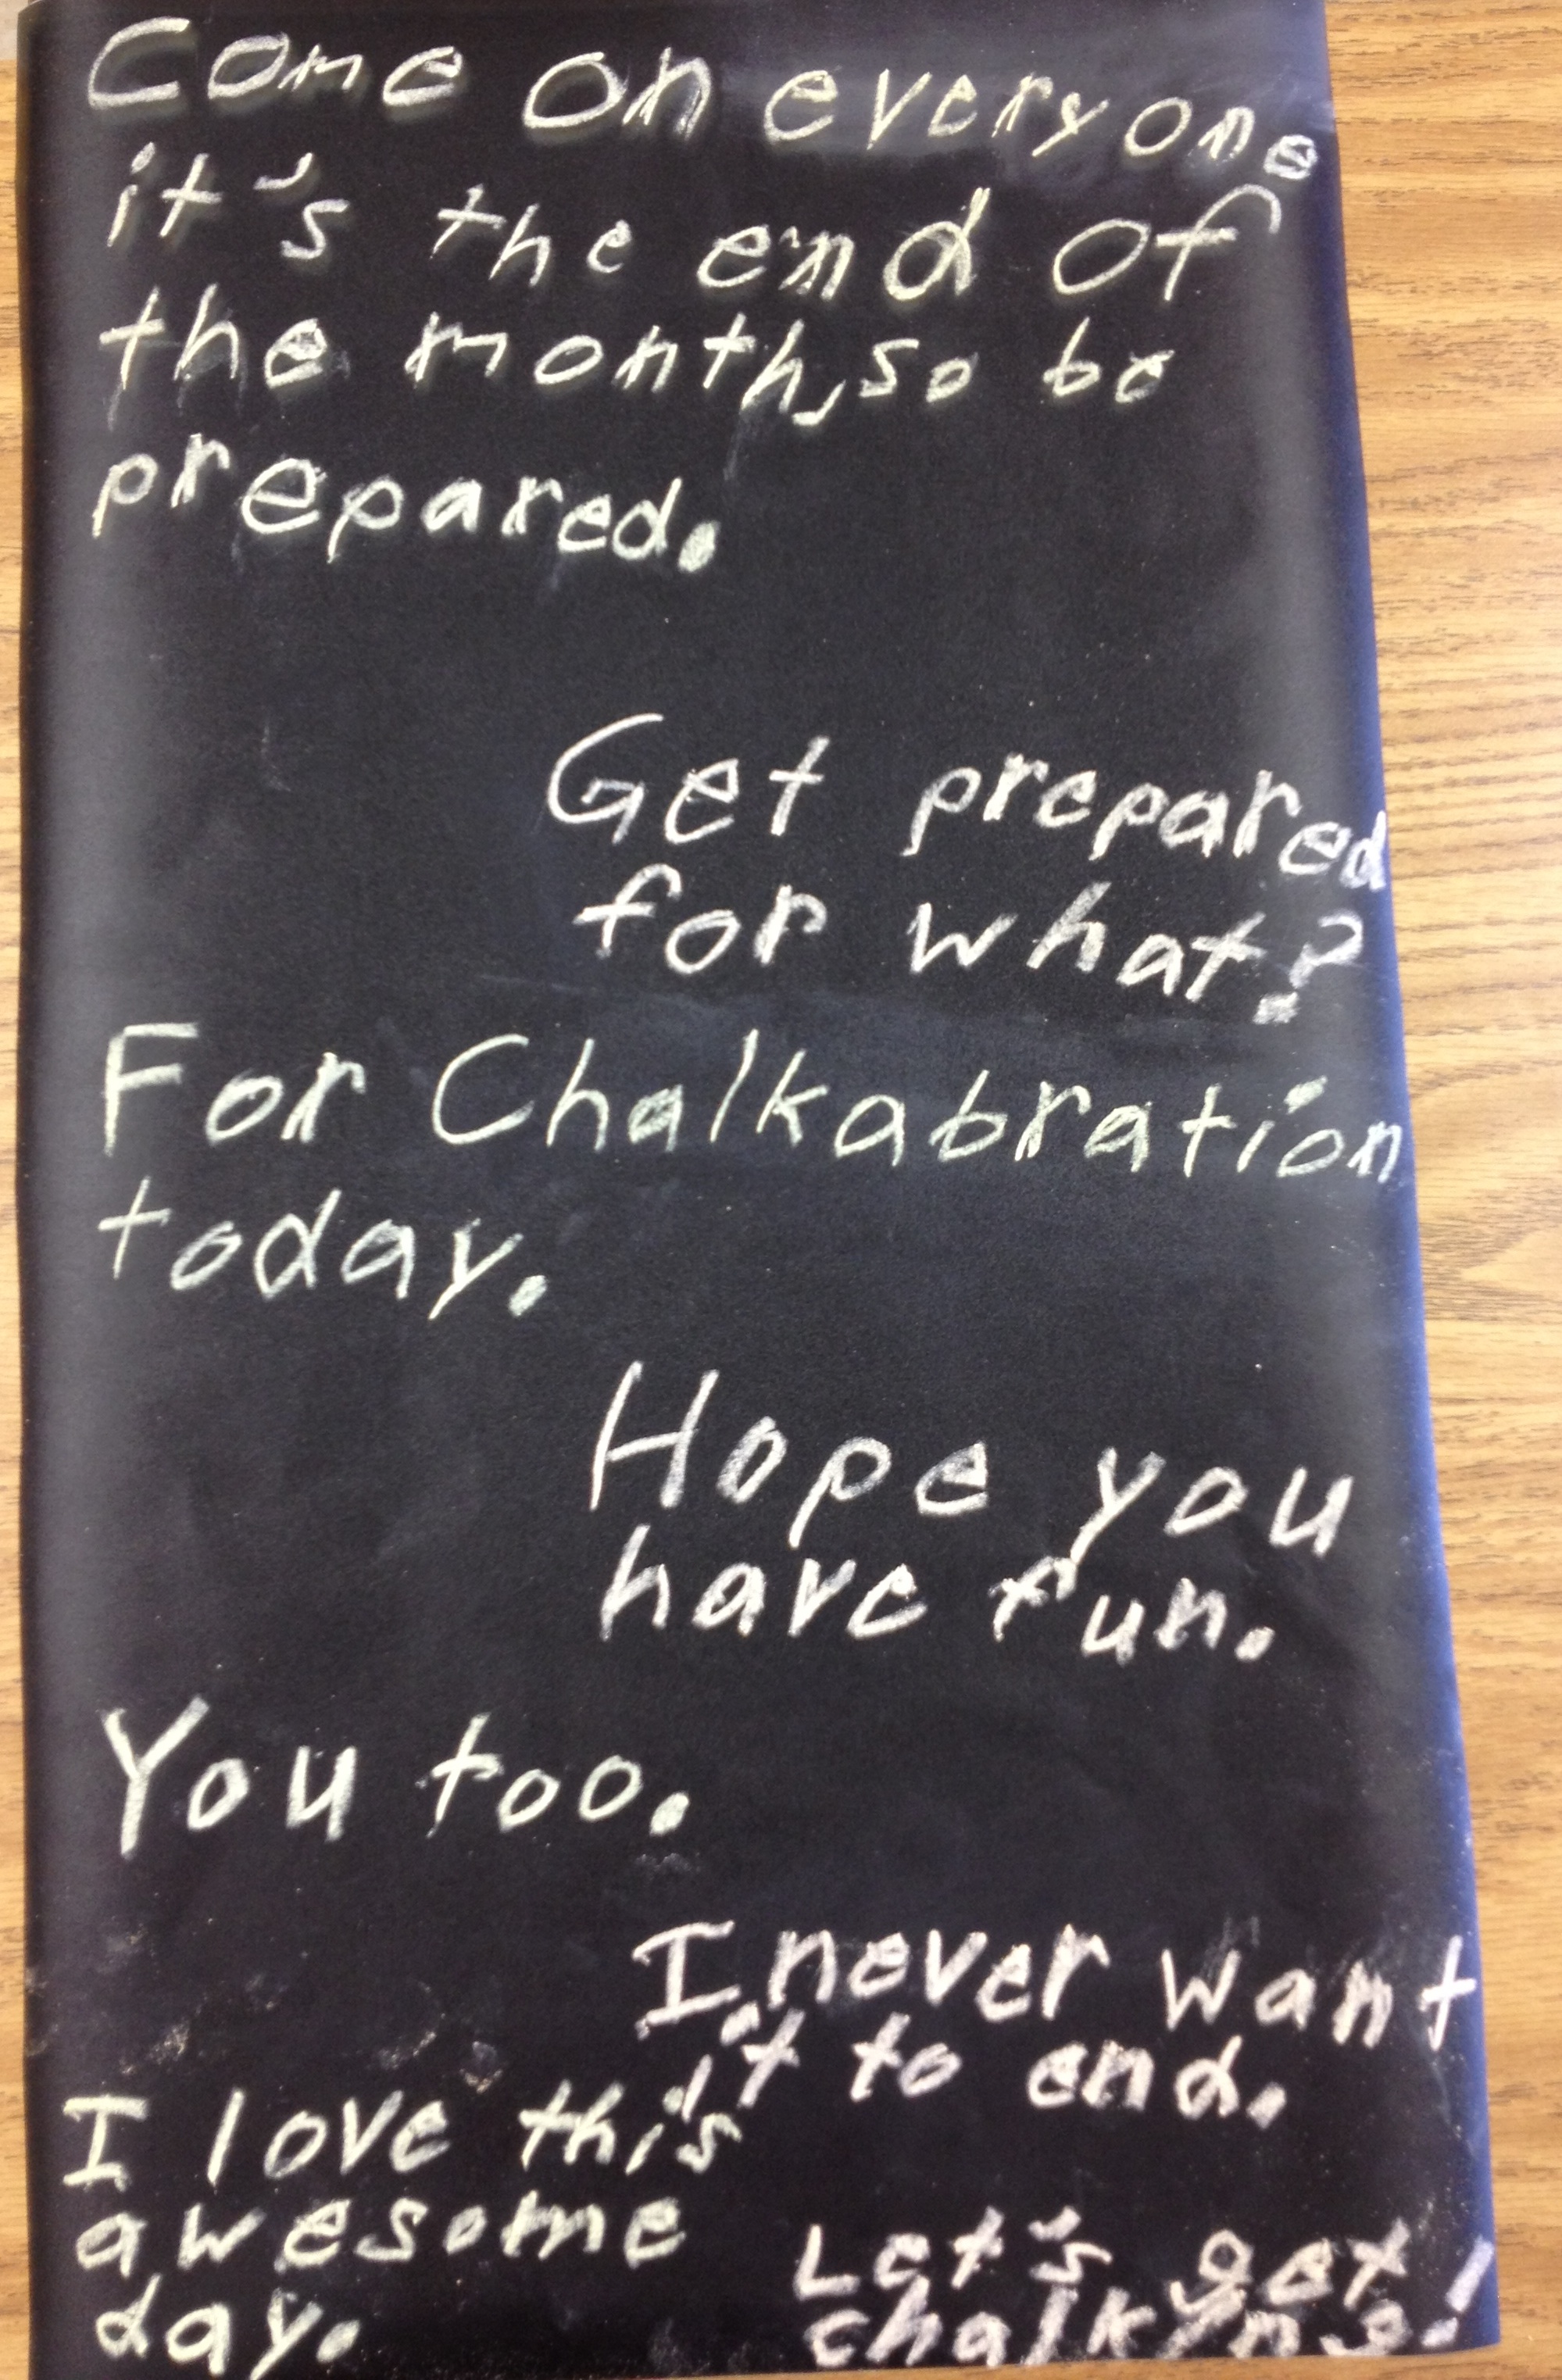 Come on everyone
it's the end of
the month, so be
prepared.
Get prepared
for what?
For Chalkabration
today.
Hope you
have fun.
You too.
I never want
it to end.
I love this
awesome
day.
Let's get
chalkyng!